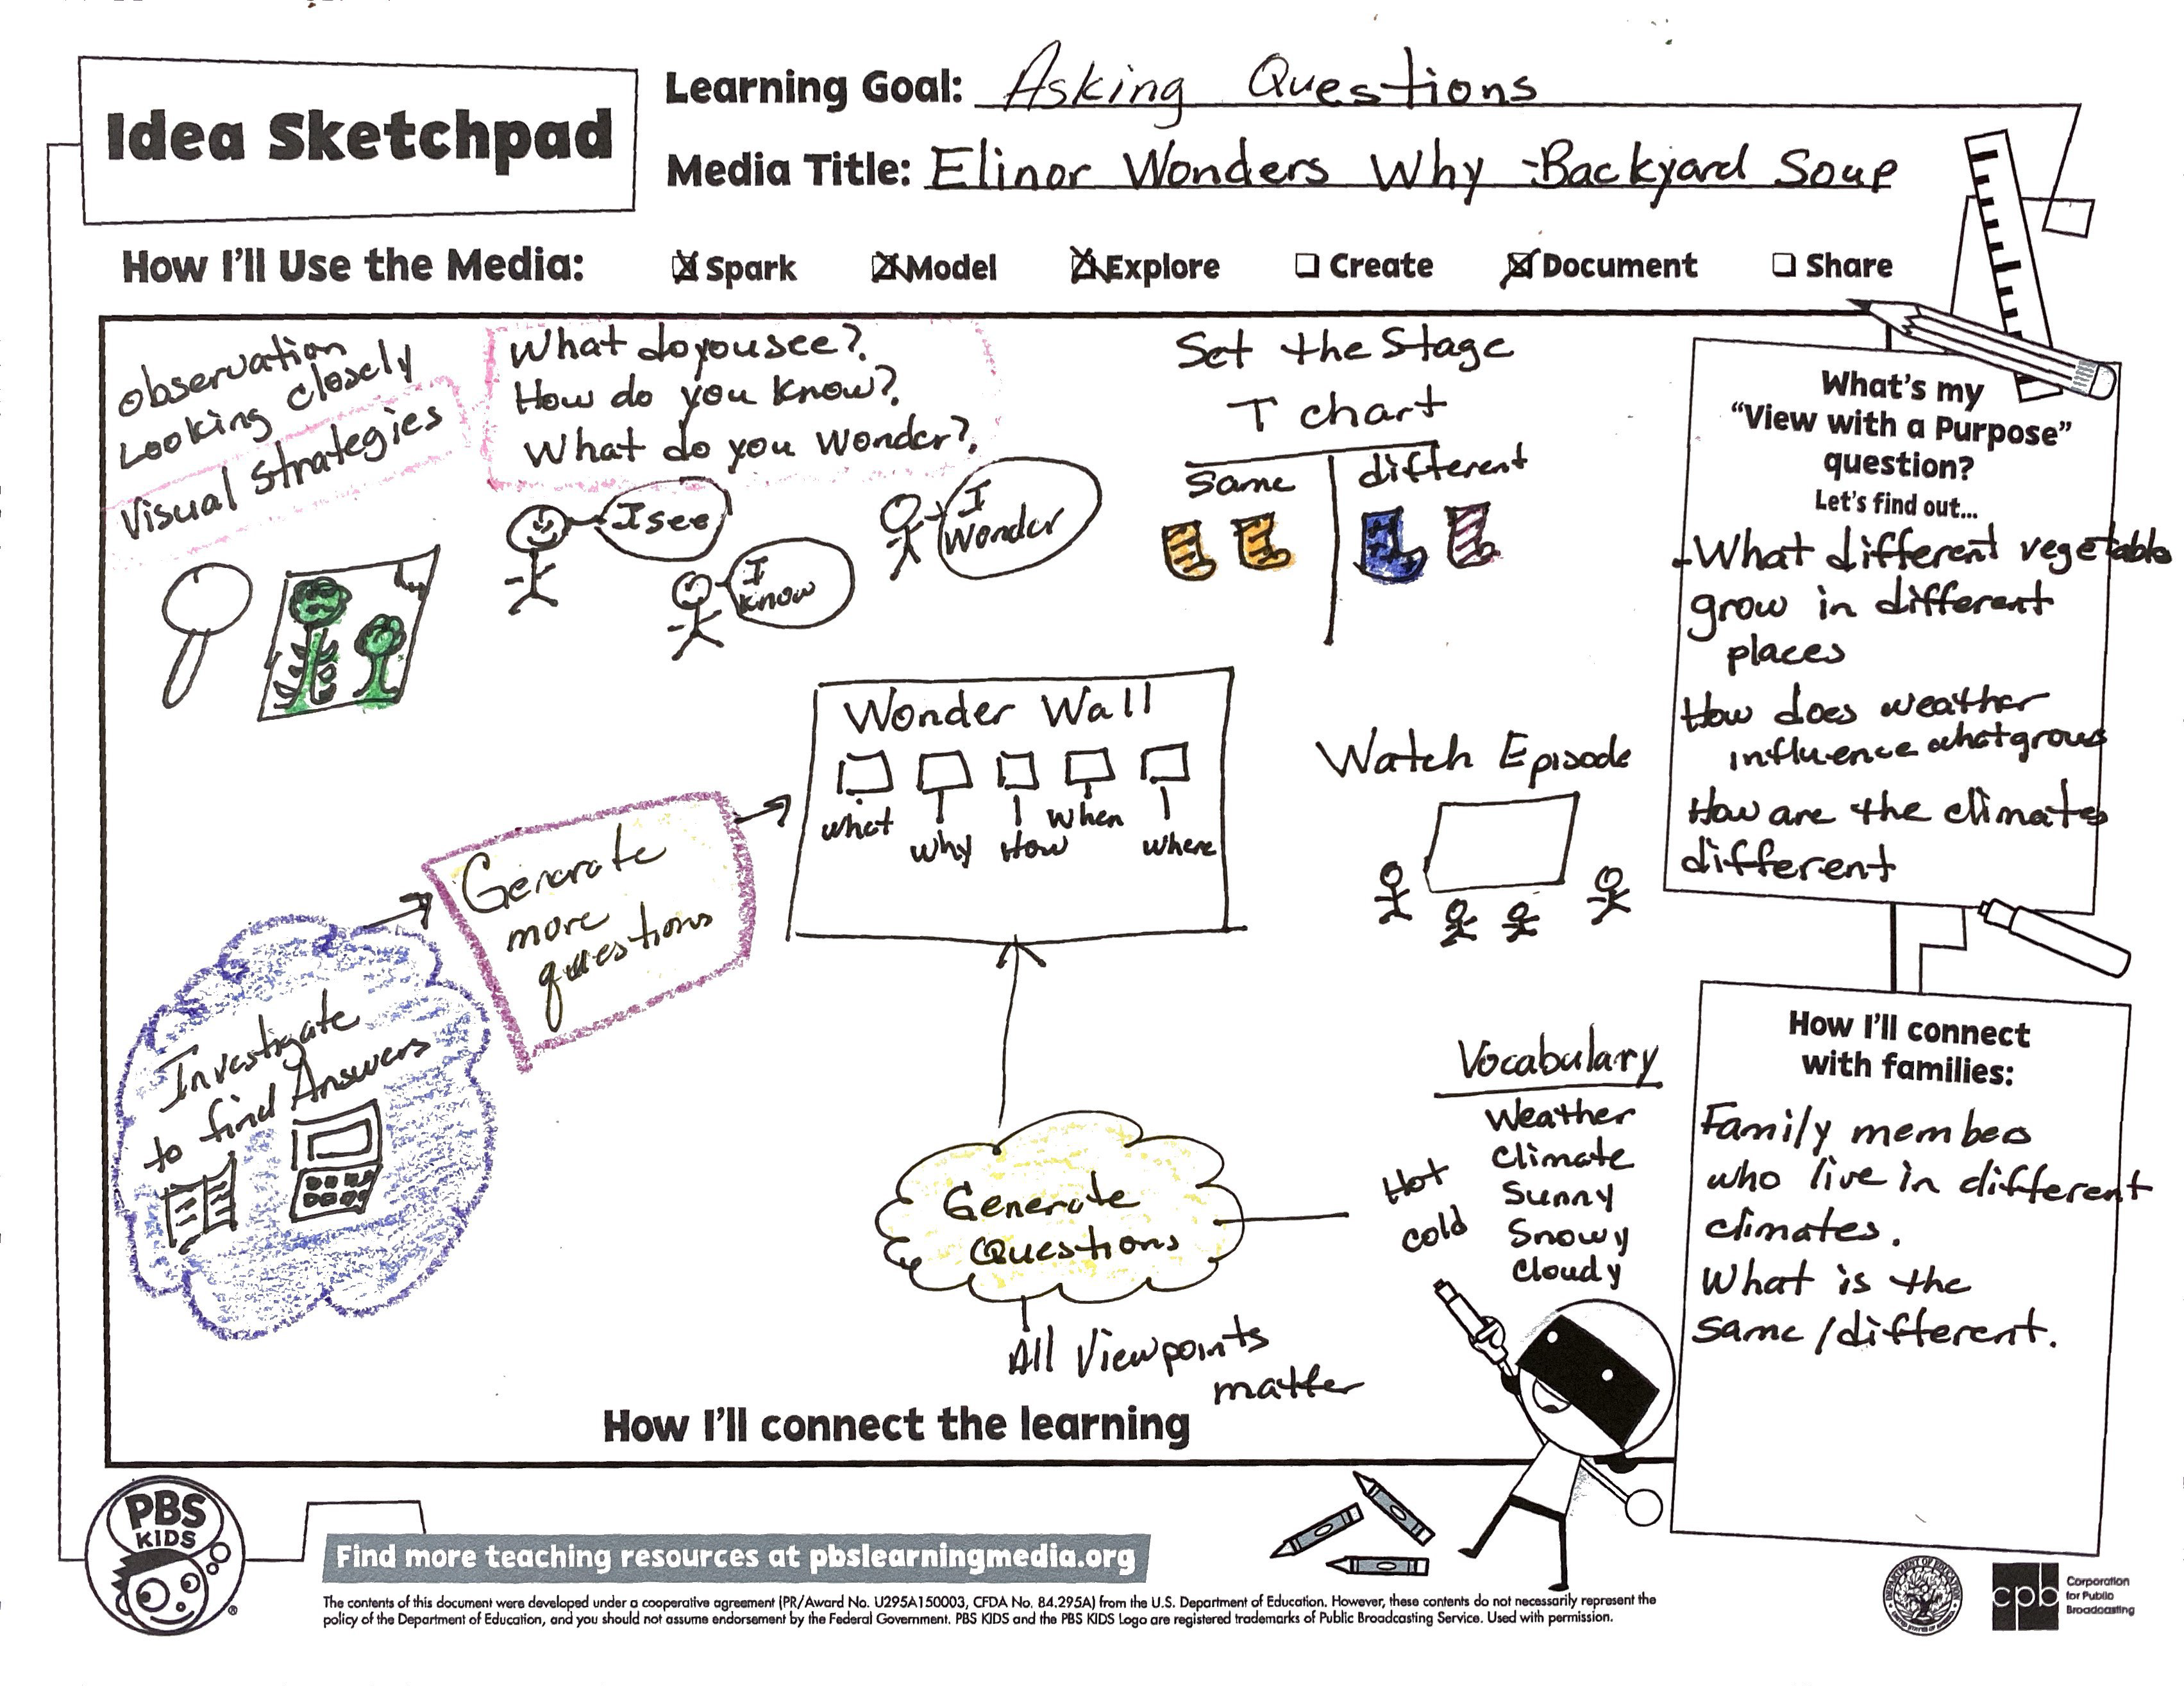 Idea Sketchpad
Learning Goal: Asking Questions
Media Title: Elinor Wonders Why -Backyard Soup
How I'll Use the Media: Spark Model Explore Create Document Share
observation
Looking closely
Visual strategies
What do you see?
How do you know?
What do you wonder?
I see
I
know
I
wonder
Set the Stage
T chart
same different
Wonder Wall
what why How when where
Watch Episode
Generate
more
questions
Investigate
to find Answers
Generate
Questions
All Viewpoints
matter
Vocabulary
Weather
Climate
Sunny
Snowy
Cloudy
Hot
cold
How I'll connect the learning
What's my
"View with a Purpose"
question?
Let's find out...
-What different vegetable
grow in different
places
How does weather
influence what grows
How are the climates
different
How I'll connect
with families:
Family members
who live in different
climates.
What is the
same/different.
PBS
KIDS
®
Find more teaching resources at pbslearningmedia.org
The contents of this document were developed under a cooperative agreement (PR/Award No. U295A150003, CFDA No. 84.295A) from the U.S. Department of Education. However, these contents do not necessarily represent the
policy of the Department of Education, and you should not assume endorsement by the Federal Government. PBS KIDS and the PBS KIDS Logo are registered trademarks of Public Broadcasting Service. Used with permission.
cpb
Corporation
for Public
Broadcasting